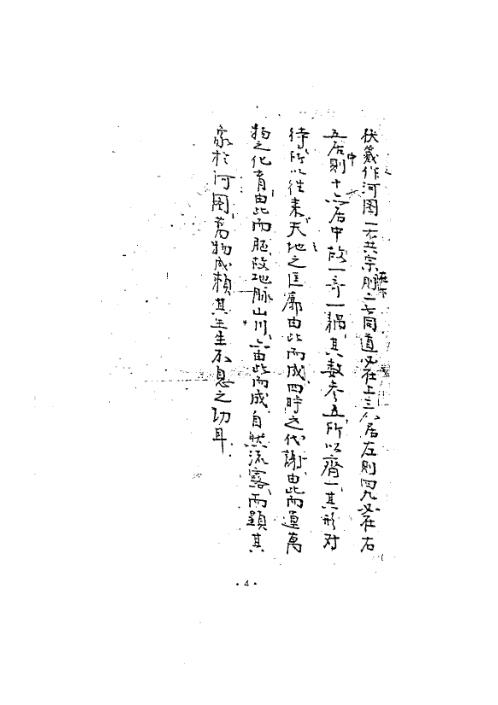 伏羲作河图一六共宗居下则二七同道必在上三八居左则四九必在右
五居中则十亦居中故一奇一耦其数参五所以齐一其形对
待所以往来天地之匡廓由此而成四时之代谢由此而运万
物之化育由此而胚故地脉山川亦由此而成自然流露而显其
象於河图万物咸赖其生生不息之功耳
·4·